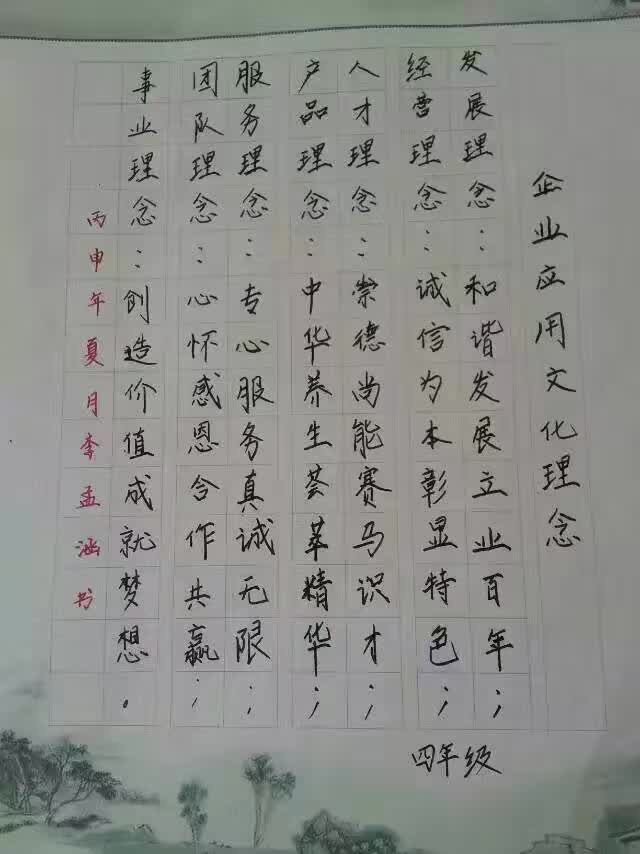 企业应用文化理念
发展理念：和谐发展立业百年；
经营理念：诚信为本彰显特色；
人才理念：崇德尚能赛马识才；
产品理念：中华养生荟萃精华；
服务理念：专心服务真诚无限；
团队理念：心怀感恩合作共赢；
事业理念：创造价值成就梦想。
丙申年夏月李孟涵书
四年级